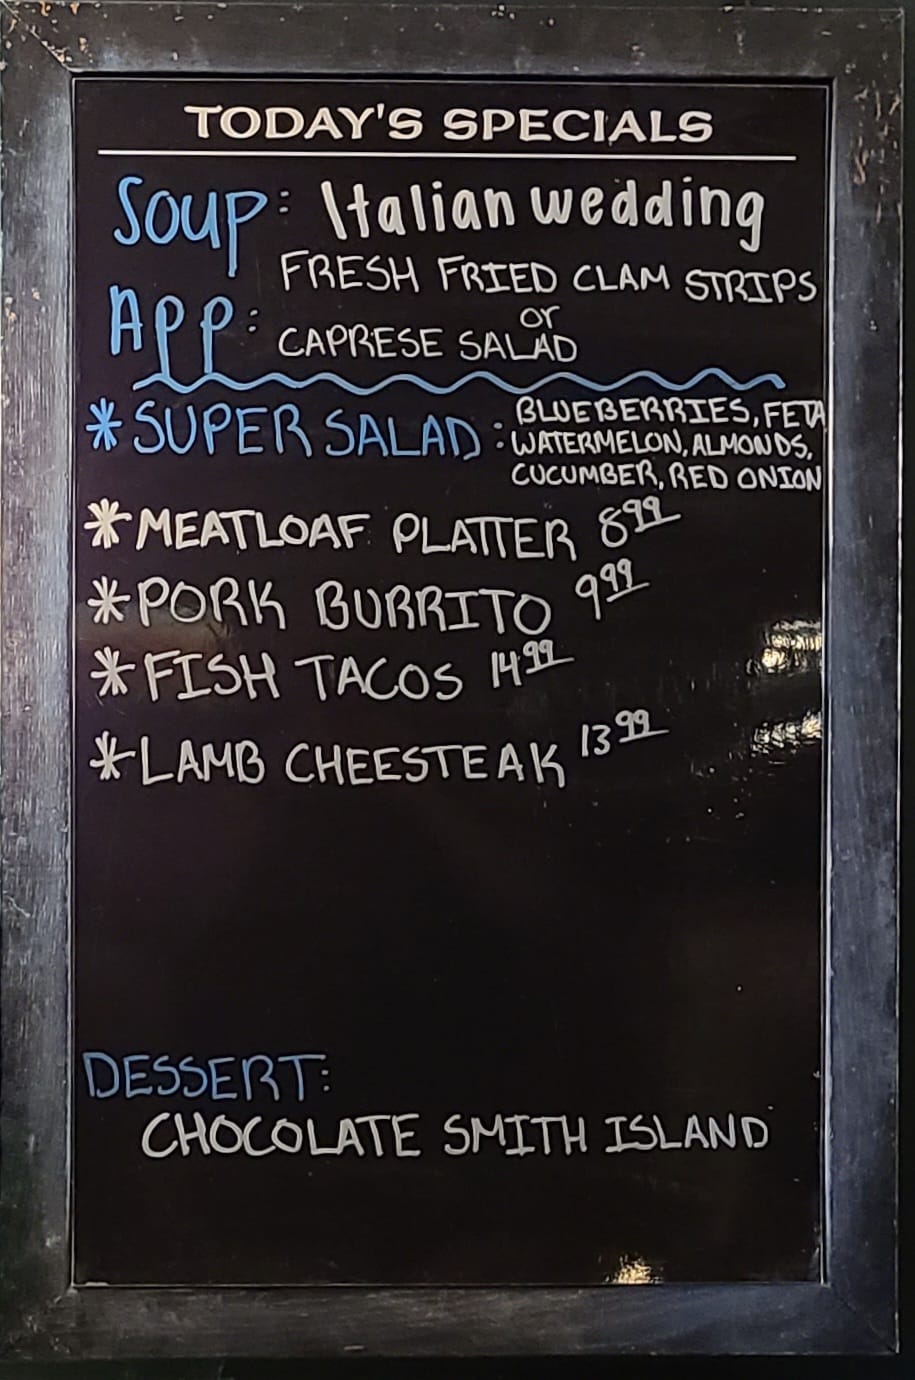 TODAY'S SPECIALS
Soup: Italian wedding
App: FRESH FRIED CLAM STRIPS
or
CAPRESE SALAD
*SUPER SALAD: BLUEBERRIES, FETA
WATERMELON, ALMONDS,
CUCUMBER, RED ONION
*MEATLOAF PLATTER 8.99
*PORK BURRITO 9.99
*FISH TACOS 14.99
*LAMB CHEESTEAK 13.99
DESSERT:
CHOCOLATE SMITH ISLAND